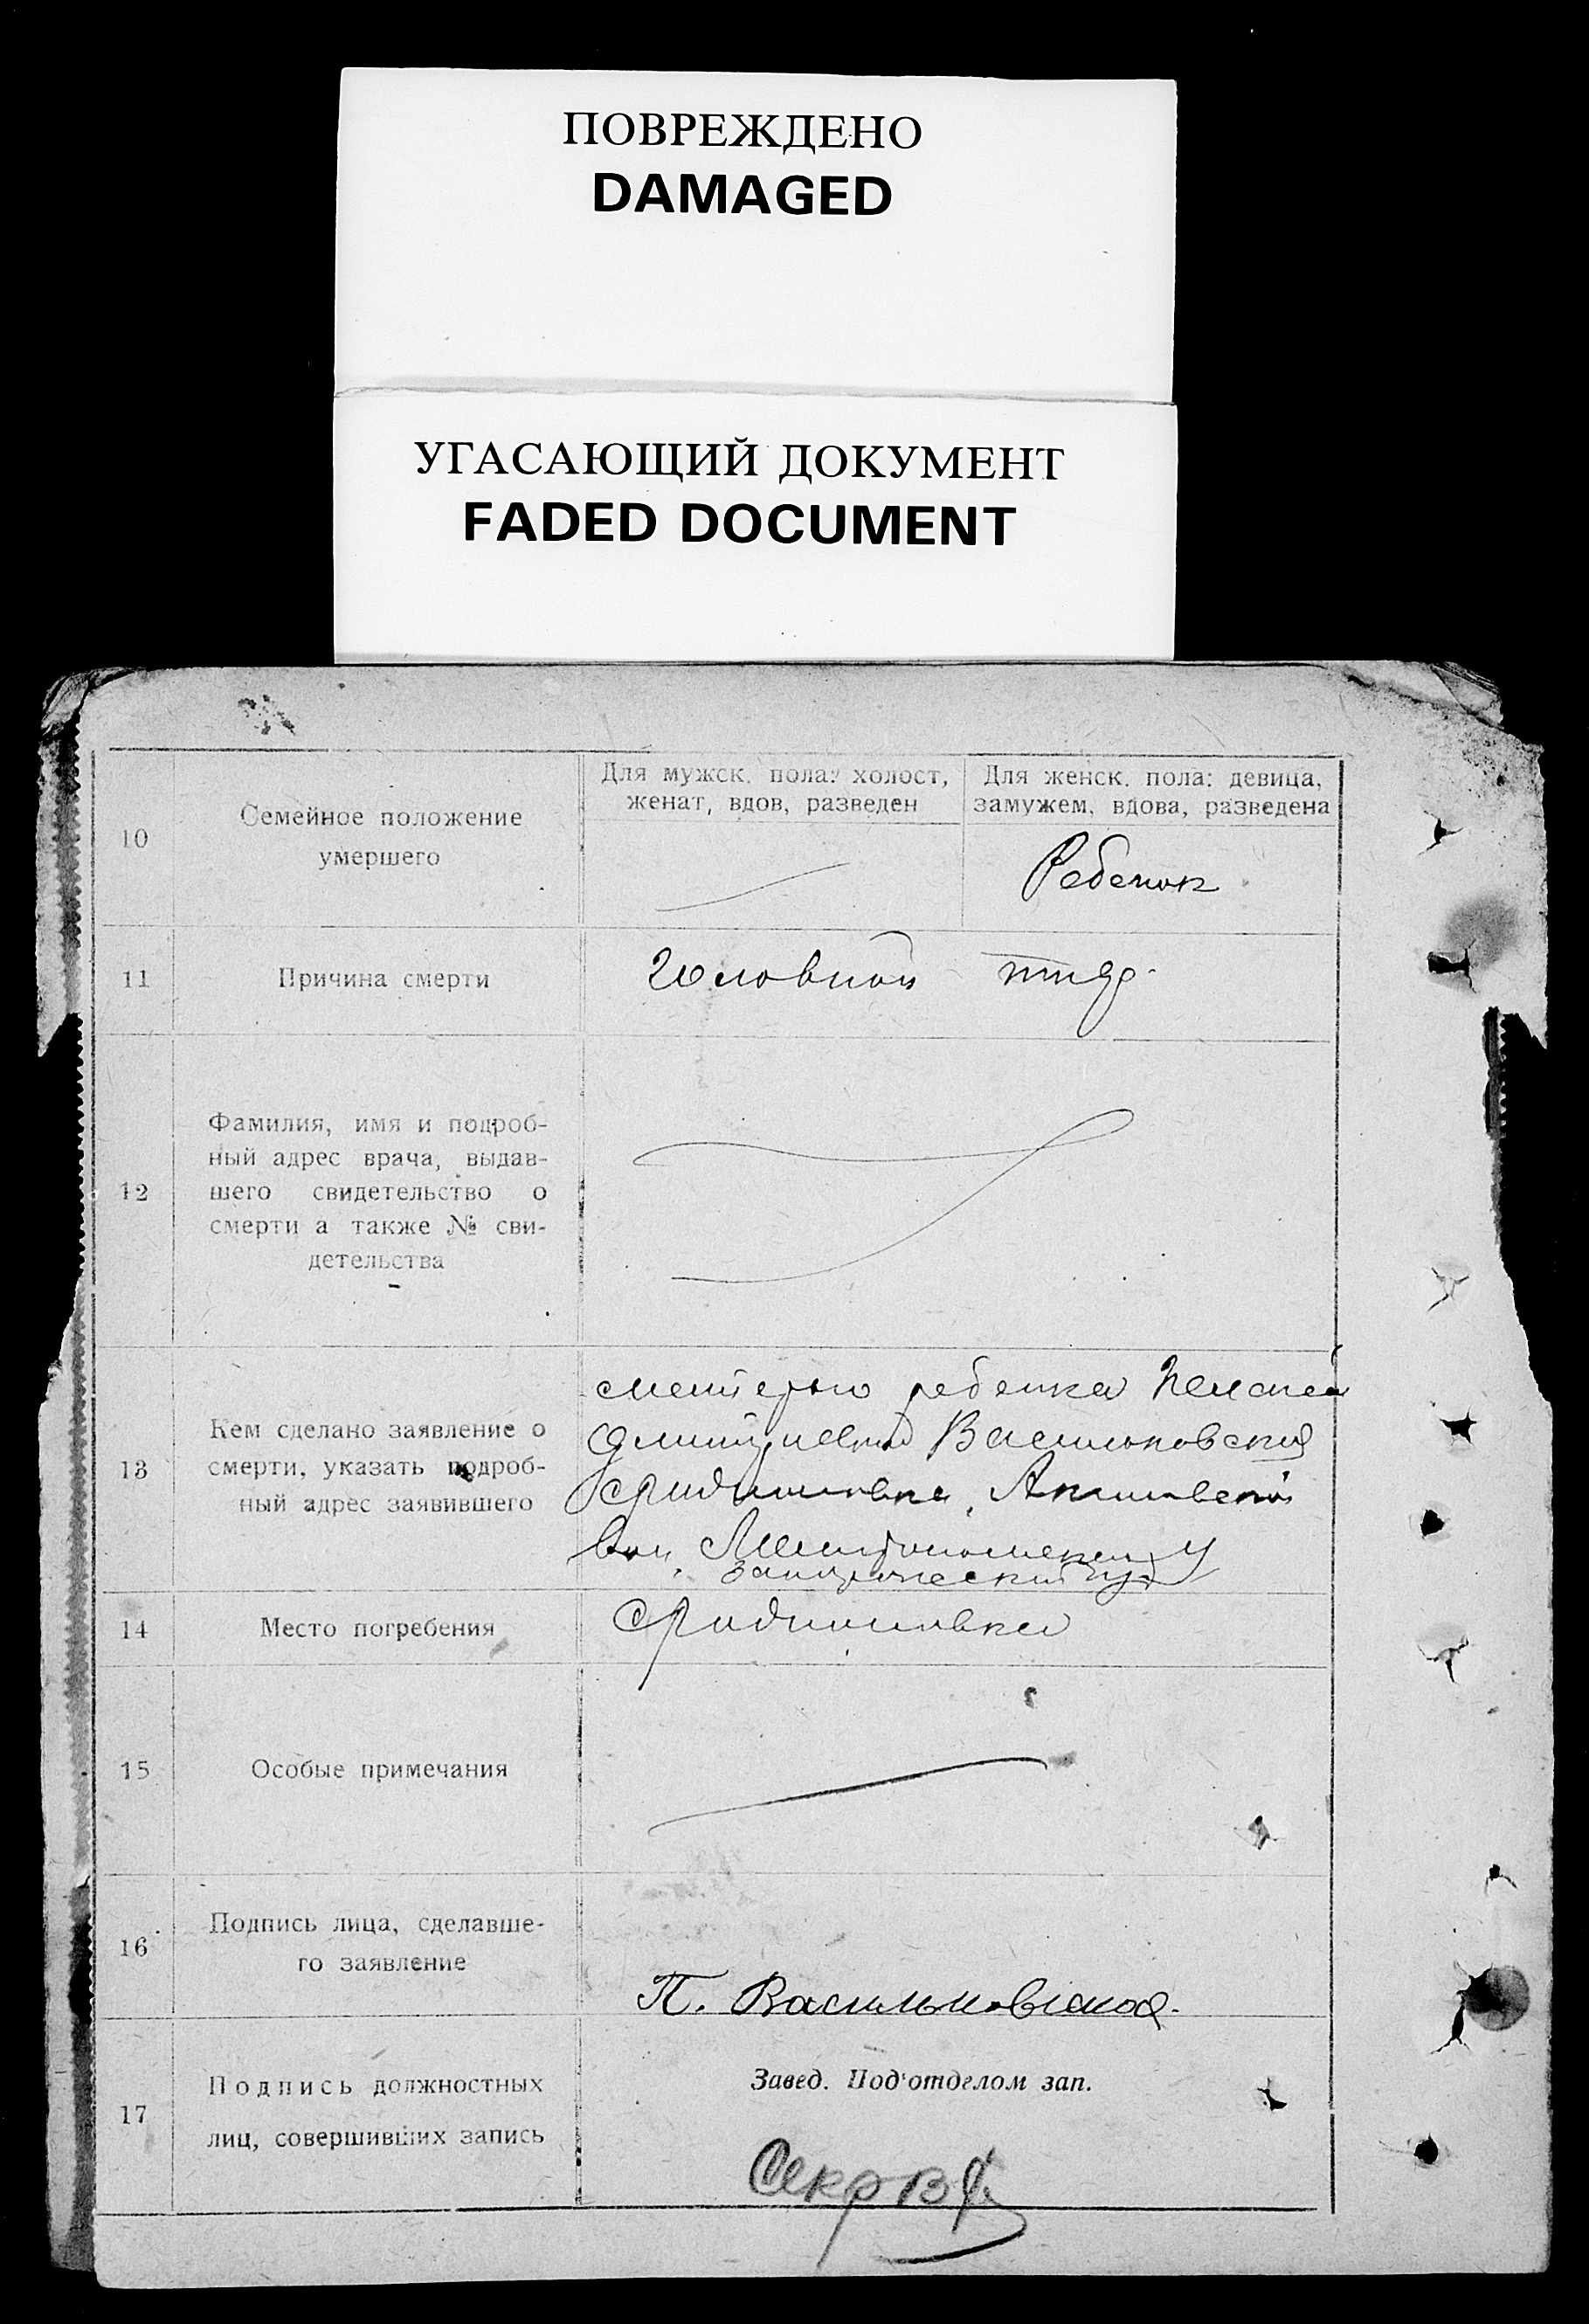 ПОВРЕЖДЕНО
DAMAGED
УГАСАЮЩИЙ ДОКУМЕНТ
FADED DOCUMENT
10
Семейное положение
умершего
Для мужск. пола: холост,
женат, вдов, разведен
Для женск. пола: девица,
замужем, вдова, разведена
Ребенок
11
Причина смерти
Головной тиф
12
Фамилия, имя и подроб-
ный адрес врача, выдав-
шего свидетельство о
смерти а также № сви-
детельства
13
Кем сделано заявление о
смерти, указать подроб-
ный адрес заявившего
матерью ребенка
Васильковская
Родионовка, Акимовской
вол. Мелитопольский у
Запорожской губ
14
Место погребения
Родионовка
15
Особые примечания
16
Подпись лица, сделавше-
го заявление
П. Васильковская.
17
Подпись должностных
лиц, совершивших запись
Завед. Под'отделом зап.
Секр